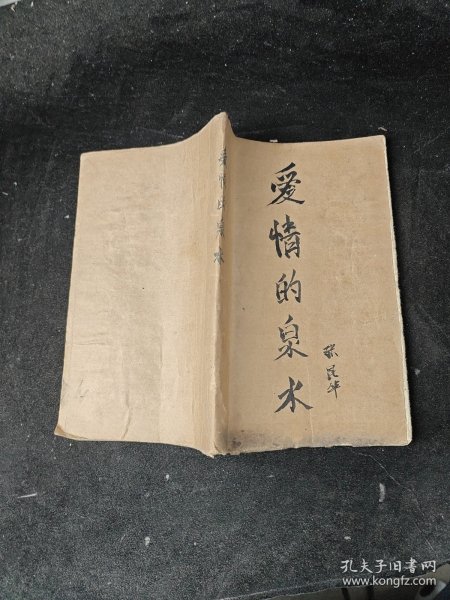 爱情的泉水
张昆华
爱情的泉水
孔夫子旧书网
www.kongfz.com